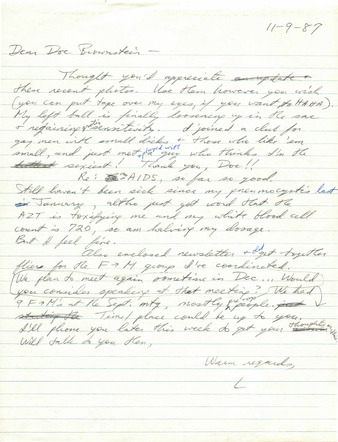 11-9-87
Dear Doc Brownstein –
Thought you'd appreciate
these recent photos. Use them however you wish
(you can put tape over my eyes, if you want, HAHA).
My left ball is finally loosening up in the sac
+ regaining its sensitivity. I joined a club for
gay men with small dicks + those who like 'em
small, and just met a guy who thinks I'm the
sexiest! Thank you, Doc!!
Re: AIDS, so far so good.
Still haven't been sick since my pneumocystis last
January, altho just got word that the
AZT is toxifying me and my white blood cell
count is 720, so am halving my dosage.
But I feel fine.
Also enclosed newsletter + get together
fliers for the F→M group I've coordinated.
(We plan to meet again sometime in Dec... Would
you consider speaking at that meeting? We had
9 F→M's at the Sept. mtg, mostly people.
Time/place could be up to you.
I'll phone you later this week to get your thoughts
Will talk to you then,
Warm regards,
L